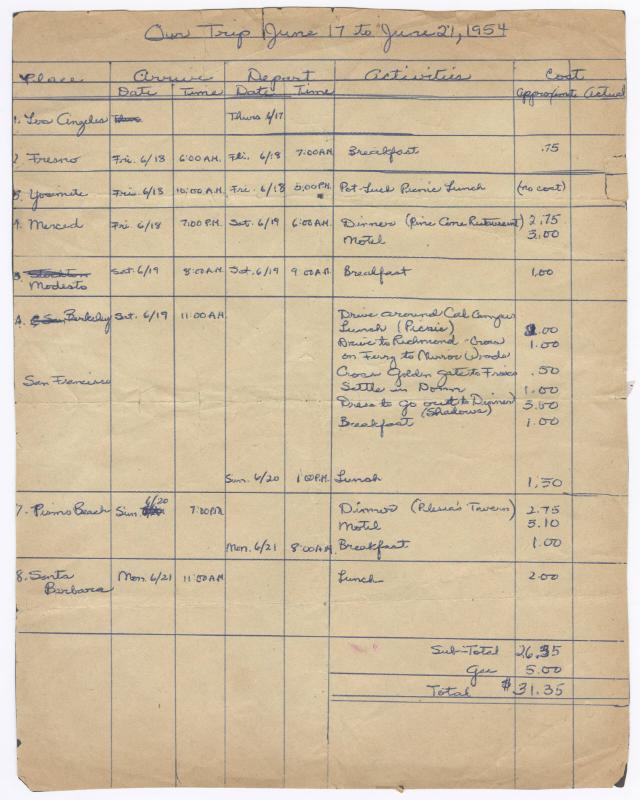 Our Trip June 17 to June 21, 1954
Place Arrive Depart Activities Cost
Date Time Date Time Approximate Actual
1. Los Angeles Thurs 6/17
2. Fresno Fri. 6/18 6:00 A.M. Fri. 6/18 7:00 A.M. Breakfast .75
3. Yosemite Fri. 6/18 10:00 A.M. Fri. 6/18 5:00 P.M. Pot-Luck Picnic Lunch (no cost)
4. Merced Fri. 6/18 7:00 P.M. Sat. 6/19 6:00 A.M. Dinner (Pine Cone Restaurant) 2.75
Motel 3.00
5. Stockton Sat. 6/19 8:00 A.M. Sat. 6/19 9:00 A.M. Breakfast 1.00
Modesto
Berkeley Sat. 6/19 11:00 A.M. Drive around Cal Campus
Lunch (Picnic) .00
Drive to Richmond - Cross 1.00
on Ferry to Muir Woods
Cross Golden Gate to Frisco .50
San Francisco Settle in Dorm 1.00
Dress to go out to Dinner 5.00
(Shadows)
Breakfast 1.00
Sun. 6/20 1:00 P.M. Lunch 1.50
7. Pismo Beach Sun 6/20 7:00 P.M. Dinner (Tavern) 2.75
Motel 5.10
Mon. 6/21 8:00 A.M. Breakfast 1.00
8. Santa Mon. 6/21 11:00 A.M. Lunch 2.00
Barbara
Sub-Total 26.35
Gas 5.00
Total $31.35